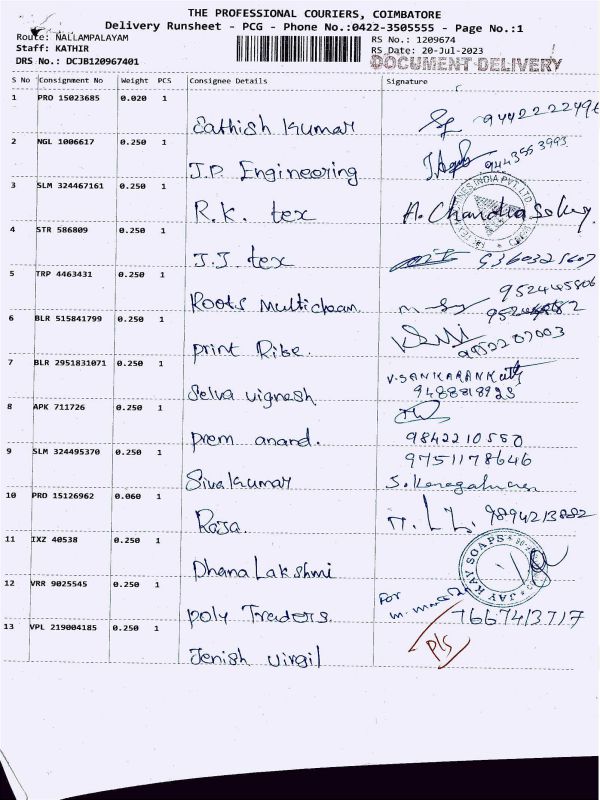 THE PROFESSIONAL COURIERS, COIMBATORE
Delivery Runsheet - PCG - Phone No.:0422-3505555 - Page No.:1
Route: NALLAMPALAYAM
RS No.: 1209674
Staff: KATHIR
RS Date: 20-Jul-2023
DRS No.: DCJB120967401
DOCUMENT DELIVERY
S No Consignment No Weight PCS Consignee Details Signature
1 PRO 15023685 0.020 1 Sathish Kumar
2 NGL 1006617 0.250 1 J.P. Engineering 9443553993
3 SLM 324467161 0.250 1 R.K. tex A. Chandra Sekay
4 STR 586809 0.250 1 J.J. tex 9360325607
5 TRP 4463431 0.250 1 Roots Multiclean
6 BLR 515841799 0.250 1 print Ribe.
7 BLR 2951831071 0.250 1 Selva vignesh V. SANKARAN 9488818923
8 APK 711726 0.250 1 prem anand. 9842210550
9 SLM 324495370 0.250 1 Sivakumar 9751178646
10 PRO 15126962 0.060 1 Raja. 9894213882
11 IXZ 40538 0.250 1 Dhana Lakshmi JAY KAY SOAPS
12 VRR 9025545 0.250 1 poly Traders. For 7667413717
13 VPL 219004185 0.250 1 Jenish virgil P/S